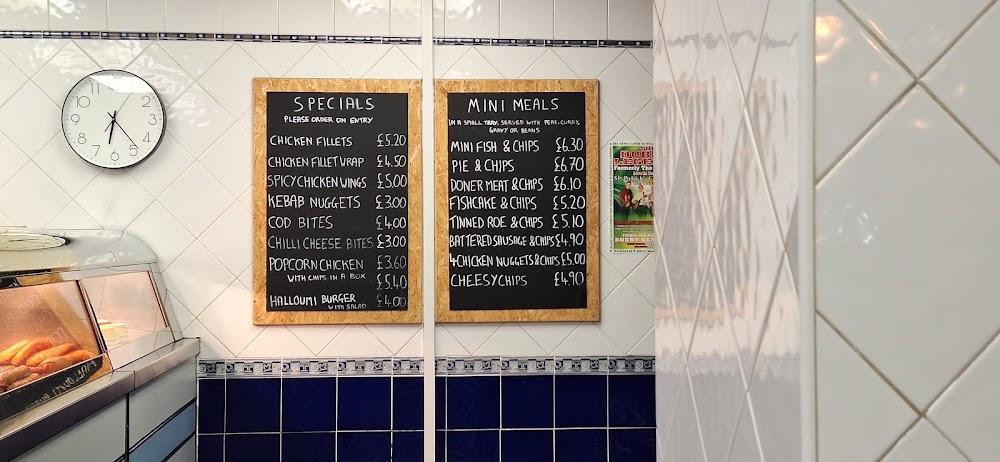 SPECIALS
PLEASE ORDER ON ENTRY
CHICKEN FILLETS £5.20
CHICKEN FILLET WRAP £4.50
SPICY CHICKEN WINGS £5.00
KEBAB NUGGETS £3.00
COD BITES £4.00
CHILLI CHEESE BITES £3.00
POPCORN CHICKEN £3.60
WITH CHIPS IN A BOX £5.40
HALLOUMI BURGER £4.00
WITH SALAD
MINI MEALS
IN A SMALL TRAY, SERVED WITH PEAS, CURRY,
GRAVY OR BEANS
MINI FISH & CHIPS £6.30
PIE & CHIPS £6.70
DONER MEAT & CHIPS £6.10
FISHCAKE & CHIPS £5.20
TINNED ROE & CHIPS £5.10
BATTERED SAUSAGE & CHIPS £4.90
4 CHICKEN NUGGETS & CHIPS £5.00
CHEESY CHIPS £4.90
12
1
2
3
4
5
6
7
8
9
10
11
Formerly The
St Patrick's